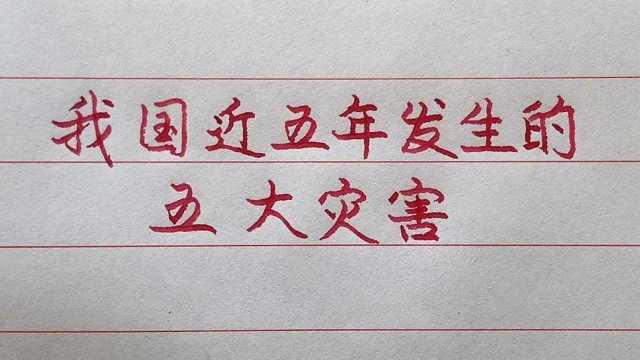 我国近五年发生的
五大灾害